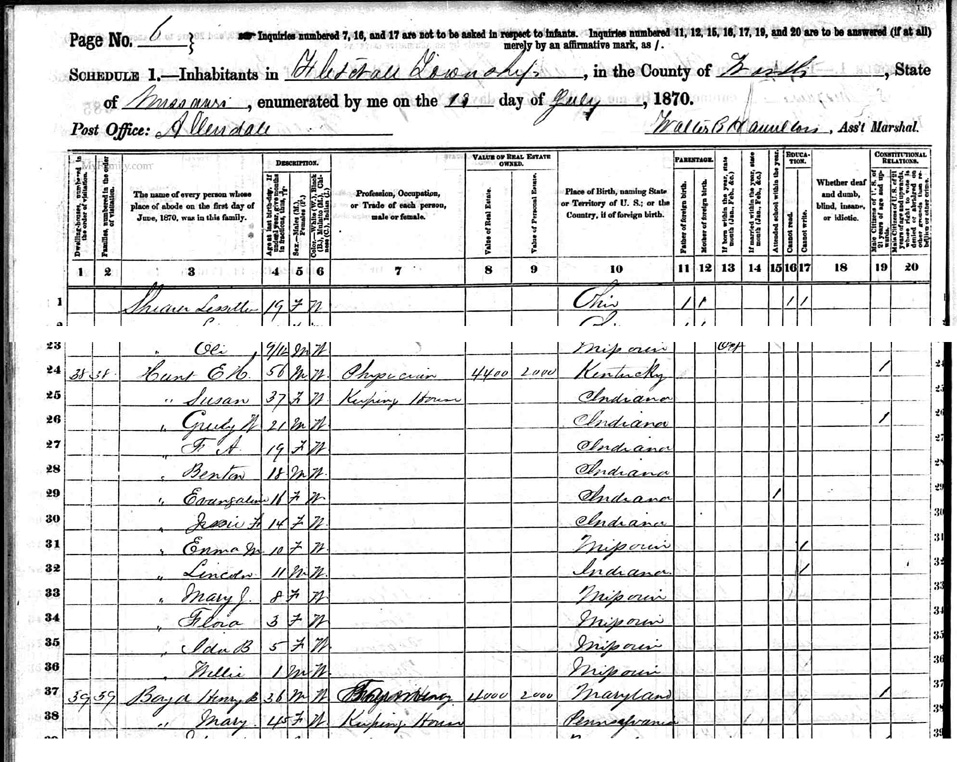 Page No. 6 } Inquiries numbered 7, 16, and 17 are not to be asked in respect to infants. Inquiries numbered 11, 12, 15, 16, 17, 19, and 20 are to be answered (if at all) merely by an affirmative mark, as /.
SCHEDULE 1.—Inhabitants in Township, in the County of Worth, State
of Missouri, enumerated by me on the 13 day of July, 1870.
Post Office: Allendale Walter B Hamilton, Ass't Marshal.
Dwelling-houses, numbered in the order of visitation.
Families, numbered in the order of visitation.
The name of every person whose place of abode on the first day of June, 1870, was in this family.
DESCRIPTION.
Age at last birth-day. If under 1 year, give months in fractions, thus, 3/12
Sex.—Males (M.), Females (F.)
Color.—White (W.), Black (B.), Mulatto (M.), Chinese (C.), Indian (I.)
Profession, Occupation, or Trade of each person, male or female.
VALUE OF REAL ESTATE OWNED.
Value of Real Estate.
Value of Personal Estate.
Place of Birth, naming State or Territory of U. S.; or the Country, if of foreign birth.
PARENTAGE.
Father of foreign birth.
Mother of foreign birth.
If born within the year, state month (Jan., Feb., &c.)
If married within the year, state month (Jan., Feb., &c.)
Attended school within the year.
EDUCATION.
Cannot read.
Cannot write.
Whether deaf and dumb, blind, insane, or idiotic.
CONSTITUTIONAL RELATIONS.
Male Citizens of U. S. of 21 years of age and upwards.
1 2 3 4 5 6 7 8 9 10 11 12 13 14 15 16 17 18 19 20
1 Shearer 19 F W Ohio 1 1 1 1 1
23 " Oli 9/12 M W Missouri
24 38 38 Hunt E H. 56 M W. Physician 4400 2000 Kentucky 1 24
25 " Susan 37 F W Keeping House Indiana 25
26 " W 21 M W Indiana 1 26
27 " F A. 19 F W Indiana 27
28 " Benton 18 M W. Indiana 28
29 " Evangaline 16 F W Indiana 1 29
30 " Jessie F 14 F W Indiana 30
31 " Emma M. 10 F W. Missouri 1 31
32 " Lincoln 11 M W. Indiana 1 32
33 " Mary J. 8 F W Missouri 33
34 " Flora 3 F W Missouri 34
35 " Ida B 5 F W. Missouri 35
36 " Willie 1 M W. Missouri 36
37 39 39 Boyd Henry 36 M W 4000 2000 Maryland 1 37
38 " Mary 45 F W Keeping House Pennsylvania 38